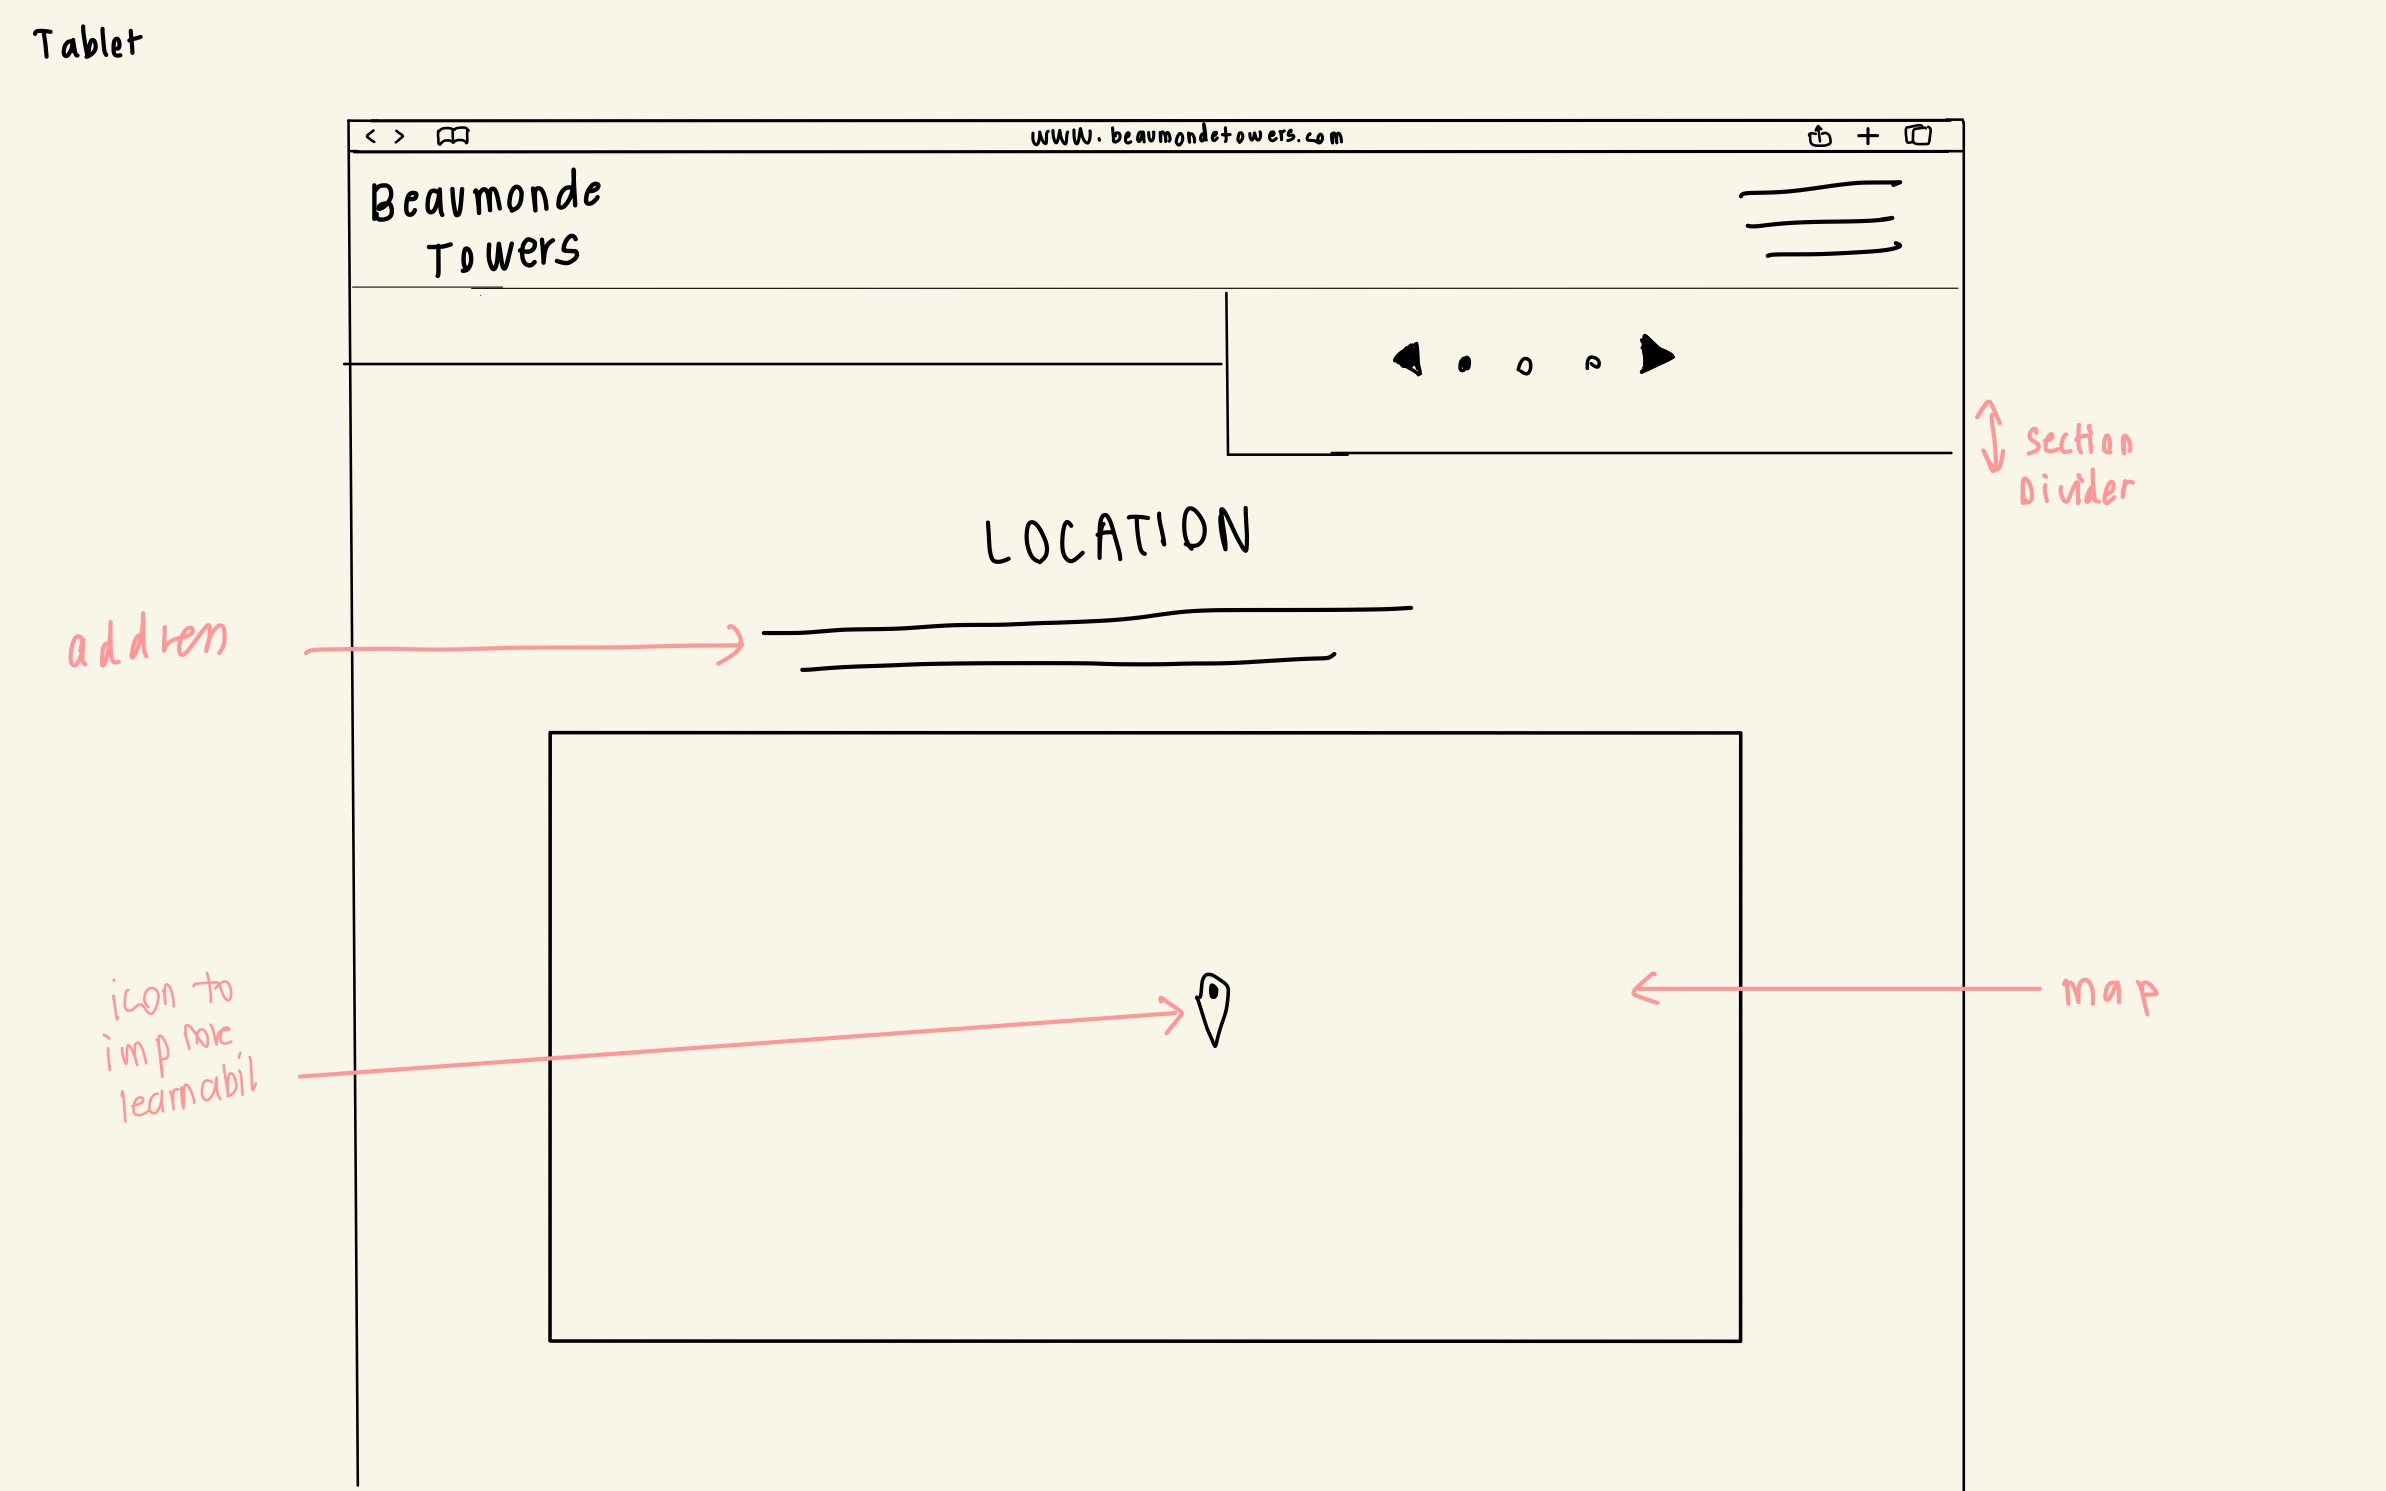 Tablet
www.beaumondetowers.com
Beaumonde
Towers
section
Divider
LOCATION
address
icon to
improve
learnabil
map